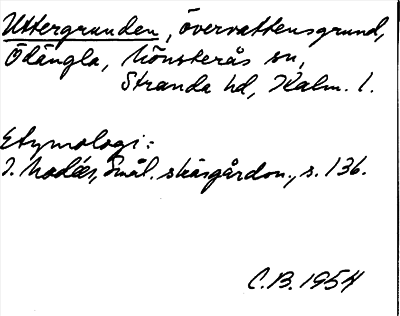 Uttergrunden, övervattensgrund,
Ödängla, Mönsterås sn,
Stranda hd, Kalm. l.
Etymologi:
I. Modéer, Smål. skärgårdsn., s. 136.
C.B. 1954